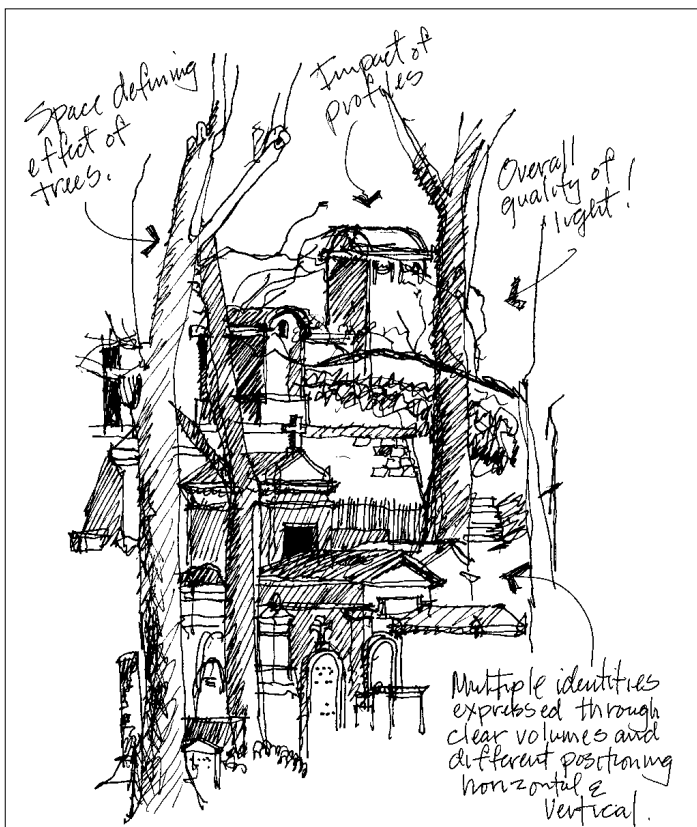 Space defining
effect of
trees.
Impact of
profiles
Overall
quality of
light!
Multiple identities
expressed through
clear volumes and
different positioning
horizontal &
vertical.